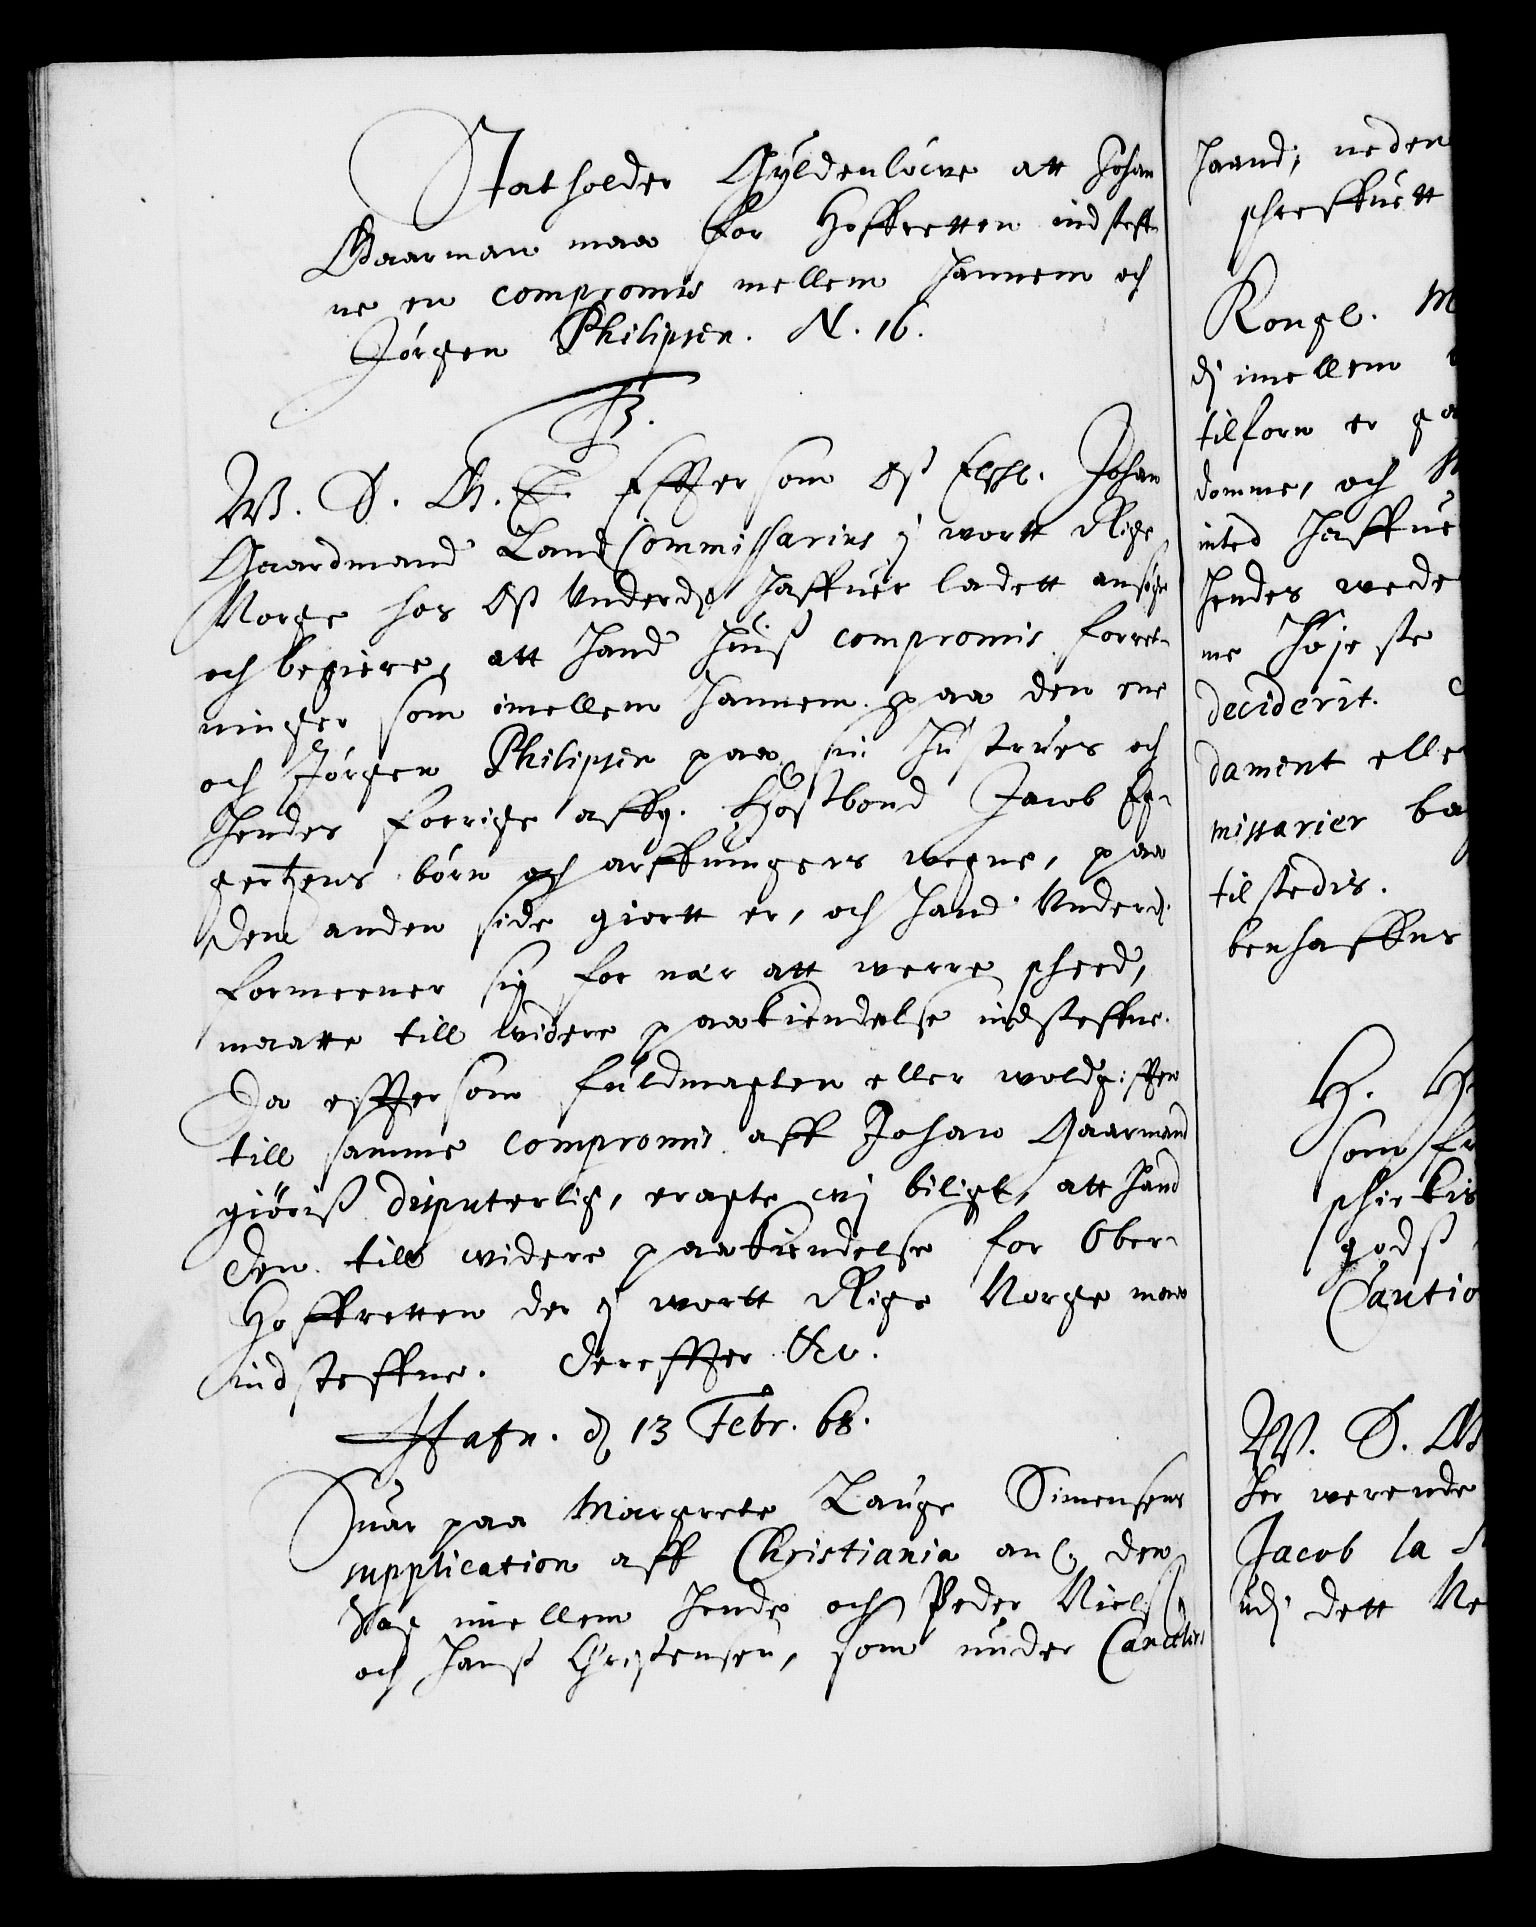 Statholder Gÿldenlöwe att Johan
Gaarman maa for Hoffretten indsteff-
ne en compromis mellem hannem och
Jörgen Philipsen. N. 16.
F3.
W. S. G. T. Effter som Oß Elskl. Johan
Gaardmand Land Commissarius j wortt Rige
Norge hos Oß Underdß haffuer ladett ansöge
och begiere, att hand huiß compromis forret-
ninger som imellem hannem paa den ene
och Jörgen Philipsen paa sin Hustrues och
hendes forrige affg. Hosbond Jacob
börn och arffuingers wegne, paa
den anden side giortt er, och hand Underd.
formeener sig for nær att werre skeed,
maatte till widere paakiendelse indsteffne.
Da effter som fuldmagten eller woldgifften
till samme compromis aff Johan Gaarmand
giöriß disputerlig, eragte wj biligt, att hand
den till widere paakiendelse for Ober-
Hoffretten der j wortt Rige Norge maa
indsteffne. Dereffter &c.
Hafn. d 13 Febr. 68.
Suar paa Margrete Lauge Simensens
supplication aff Christiania an den
Sag imellem hende och Peder Nielß
och Hanß Christensen, som under Cancelliets
haand; neden
schreffuett
Kongl. M
dj imellem
tilforn er ga
domme, och
inted haffue
hendes wede
me Höje ste
deciderit.
dament elle
missarier ba
tilstedis.
benhaffns
H. H
som fr
schickis
godß
Cautio
W. S. G
her werende
Jacob la
udj dett Ne